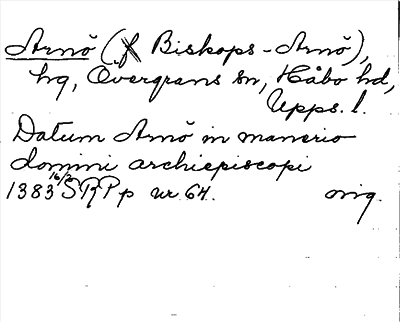 Arnö (jf Biskops-Arnö),
hg, Övergrans sn, Håbo hd,
Upps. l.
Datum Arnö in manerio
domini archiepiscopi
1383 16/2 SRPp nr 64. orig.